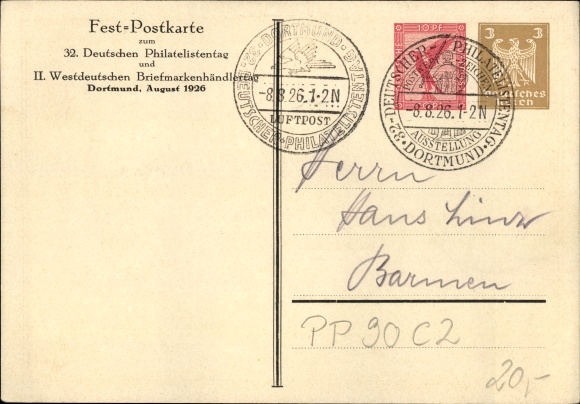 Fest=Postkarte
zum
32. Deutschen Philatelistentag
und
II. Westdeutschen Briefmarkenhändlertag
Dortmund, August 1926
32. DEUTSCHER PHILATELISTENTAG DORTMUND
-8.8.26.1-2N
LUFTPOST
10 PF
3 3
Deutsches
32. DEUTSCHER PHILATELISTENTAG
-8.8.26.1-2N
AUSSTELLUNG
DORTMUND
Herrn
Hans
Barmen
PP 90 C2
20,-